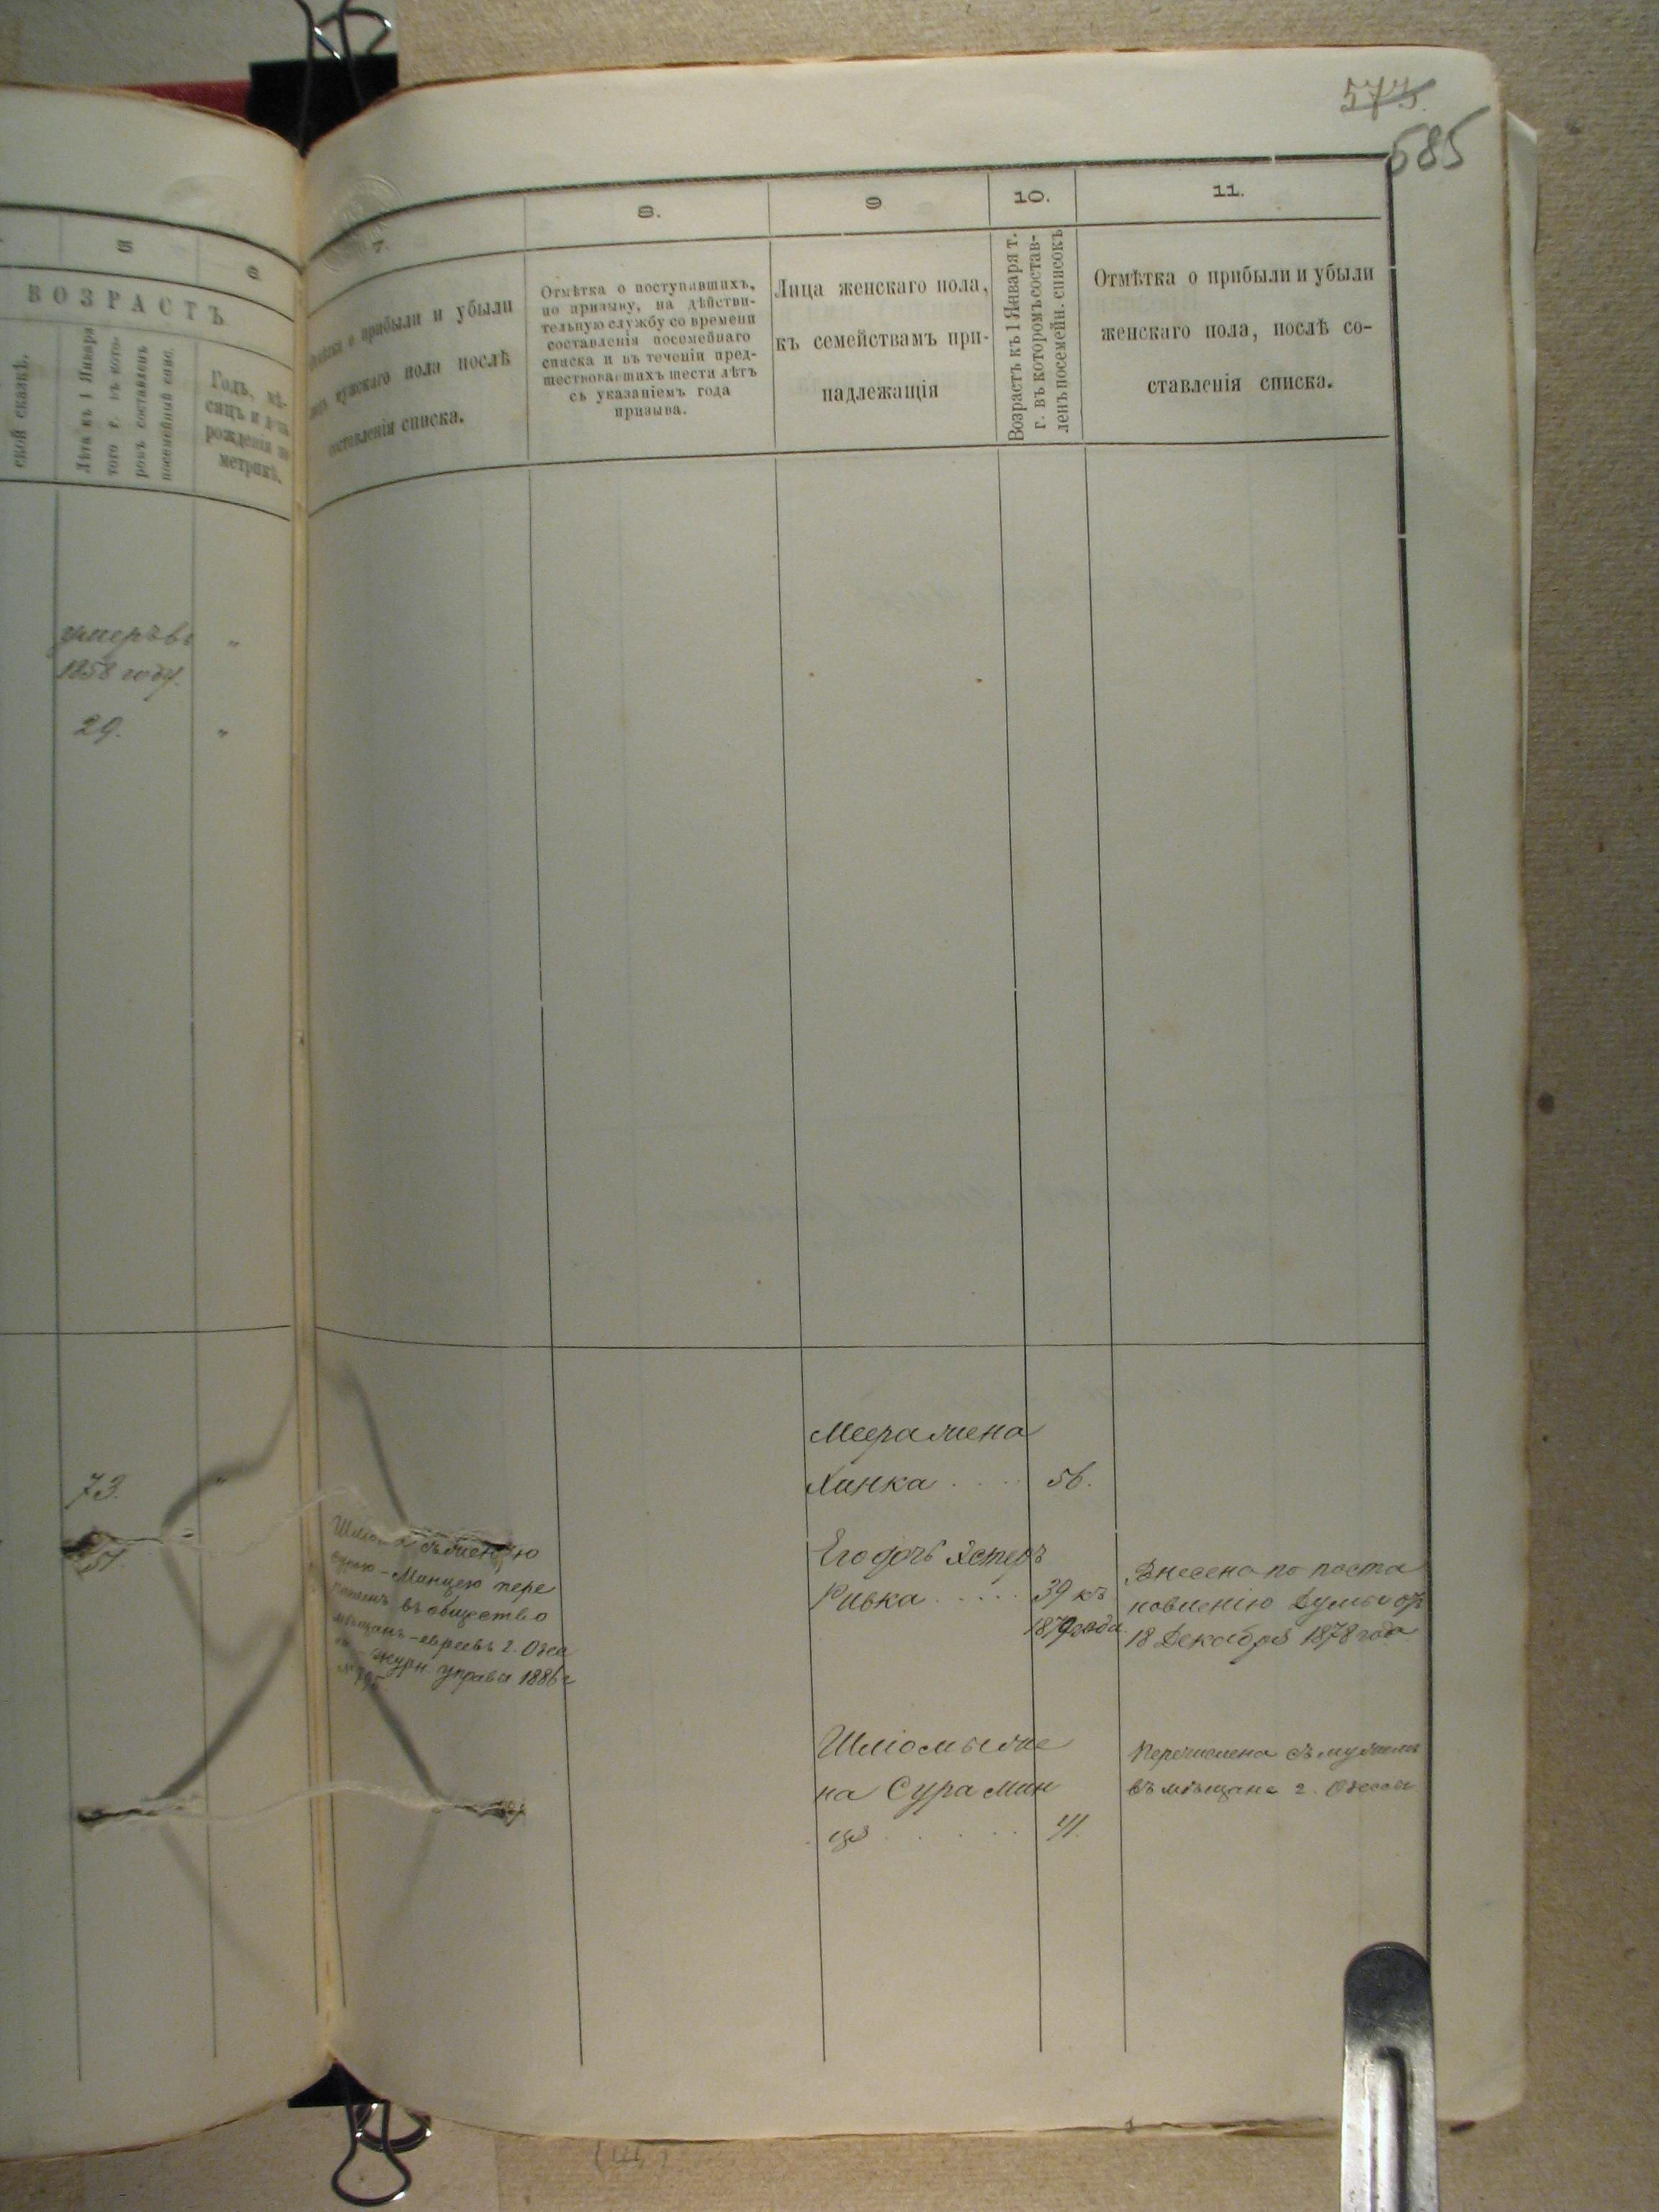 573.
685
5
6
ВОЗРАСТЪ
ской сказкѣ.
Лѣта къ 1 Января
того г. въ кото-
ромъ составленъ
посемейный спис.
Годъ, мѣ-
сяцъ и день
рожденія по
метрикѣ.
умеръ въ
1858 году.
"
29.
"
73.
"
51.
7.
о прибыли и убыли
мужскаго пола послѣ
составленія списка.
8.
Отмѣтка о поступившихъ,
по призыву, на дѣйстви-
тельную службу со времени
составленія посемейнаго
списка и въ теченіи пред-
шествовавшихъ шести лѣтъ
съ указаніемъ года
призыва.
9
Лица женскаго пола,
къ семействамъ при-
надлежащія
10.
Возрастъ къ 1 Января т.
г. въ которомъ состав-
ленъ посемейн. списокъ
11.
Отмѣтка о прибыли и убыли
женскаго пола, послѣ со-
ставленія списка.
съ женою
Сурою-Манцею пере
въ общество
мѣщанъ-евреевъ г. Одес
журн. управы 1886 г
Меера жена
Ханка . . . . 56.
Его дочь Эстеръ
Ривка . . . . . 39 къ
1879 года.
Внесена по поста
новленію Думы отъ
18 Декабря 1878 года
Шліомы же
на Сура Ман
ця . . . . . 41.
Перечислена съ мужемъ
въ мѣщане г. Одессы